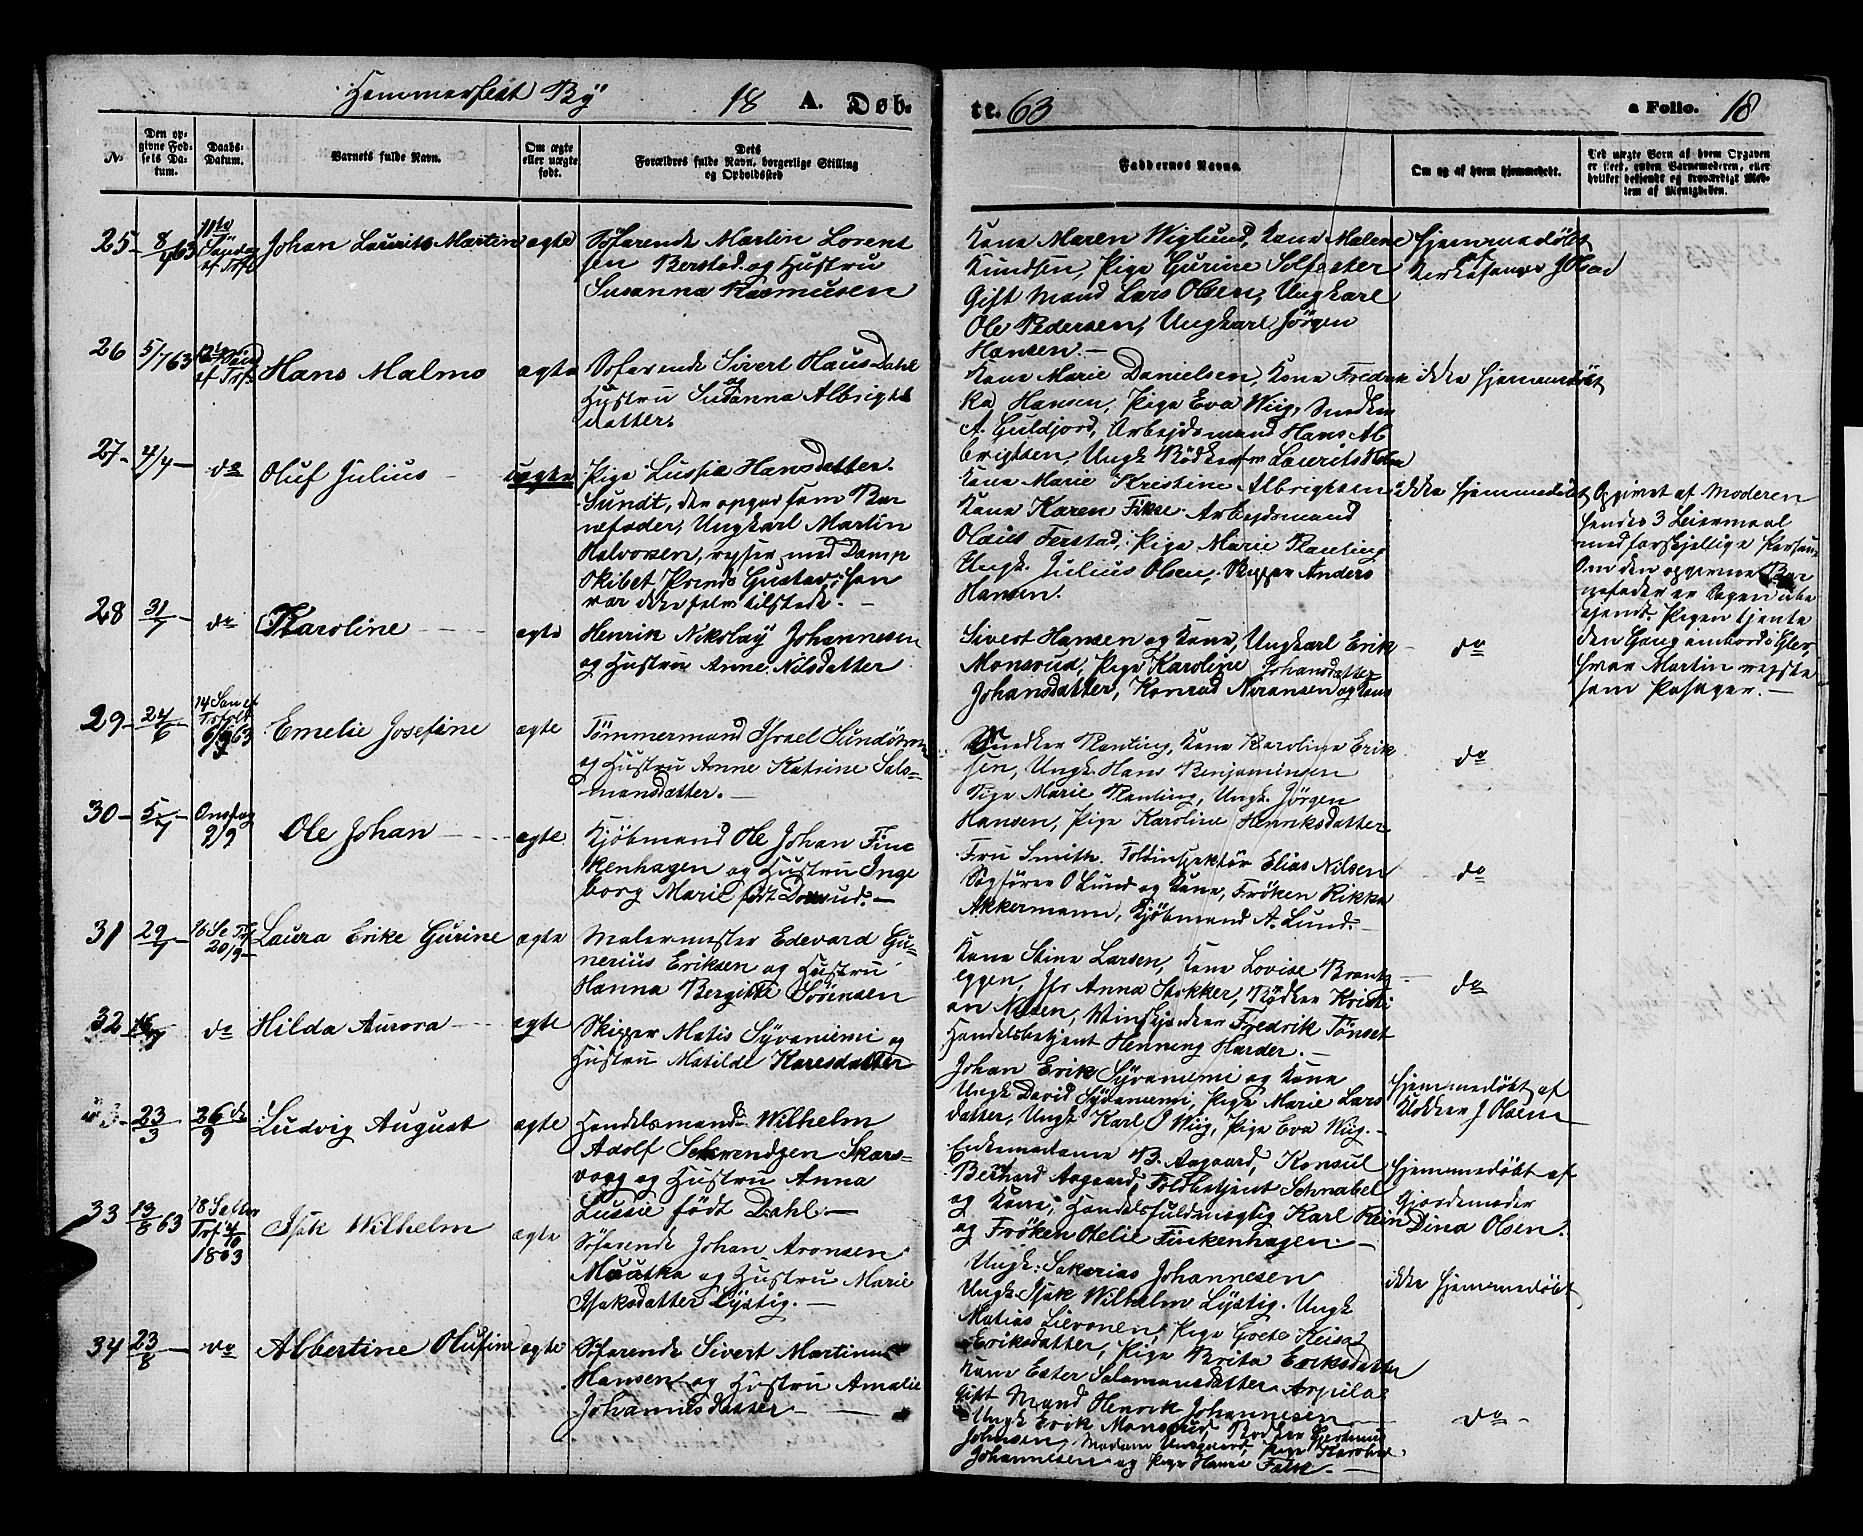 Hammerfest By 18 A. Døb-
te. 63 a Folio. 18
No
Den op-
givne Fød-
sels Da-
tum.
Daabs-
Datum.
Barnets fulde Navn.
Om ægte
eller uægte
født.
Dets
Forældres fulde Navn, borgerlige Stilling
og Opholdssted
Faddernes Navne.
Om og af hvem hjemmedøbt.
Ved uægte Børn af hvem Opgaven
er skeet, enten Barnemoderen, eller
hvilket bekjendt og troværdigt Med-
lem af Menigheden.
25 - 8/ 63
11te
Søndag
ef Trf
Johan Laurits Martin ægte
Søfarende Martin Lorent
sen Berstad og Hustru
Susanna Rasmusen
Kone Maren Wiglund, Kone Malene
Knudsen, Pige Gurine
Gift Mand Lars Olsen, Ungkarl
Ole Pedersen, Ungkarl Jørgen
Hansen. -
Hjemmedøbt
af
Kirkesanger J Olsen
26 5/7 63
ef Trf
Hans Malmo ægte
Søfarende Sivert Haus Dahl
og
Hustru Susanna Albrigts
datter.
Kone Marie Danielsen, Kone Fredrik
ka Hansen, Pige Eva Wiig, Snedker
A. Guldjord, Arbejdsmand Hans Al
brigtsen, Ungk. Bødker Laurits Holm
ikke hjemmedøbt
27 - 4/4 - do Oluf Julius - uægte
Pige Lussie Hansdatter
Sundt, der opgav som Bar
nefader, Ungkarl Martin
Halvorsen, rejser med Damp
skibet Prinds Gustav; han
var ikke selv tilstede. -
Kone Marie Kristine Albrigtsen
Kone Karen Fikse. Arbejdsmand
Olaus Ferstad, Pige Marie Planting
Ungk. Julius Olsen, Skipper Anders
Hansen.
ikke hjemmedøbt
Opgivet af Moderen
hendes 3 Leiermaal
med forskjellige Person
Om den opgivne Bar
nefader er Sagen ube
kjendt. Pigen tjente
den Gang ombord
hvor Martin rejste
som Pasager. -
28 31/7 - do Karoline - - - ægte
Henrik Nikolay Johannesen
og Hustru Anne Nilsdatter
Sivert Hansen og Kone, Ungkarl Erik
Monsrud, Pige Karoline Johansdatter
Johansdatter, Konrad Arvansen og
do
29 - 24/6
14 San ef
Trfolt
6/9 63
Emelie Josefine ægte
Tømmermand Israel Sundstrøm
og Hustru Anne Katrine Salo-
monsdatter. -
Snedker Planting, Kone Karoline Erik
sen, Ungk. Hans Benjaminsen
Pige Marie Planting, Ungk. Jørgen
Hansen, Pige Karoline Henriksdatter
do
30 - 5/7 -
Onsdag
9/9
Ole Johan - - - ægte
Kjøbmand Ole Johan Finc
kenhagen og Hustru Inge
borg Marie født -
Fru Smith. Toldinspektør Elias Nilsen
Sagfører O Lund og Kone, Frøken Rikka
Akkermann, Kjøbmand A. Lund. -
do
31 29/7 -
16 Se Trf
20/9 -
Laura Erike Gurine ægte
Malermester Edevard Gu-
nerius Eriksen og Hustru
Hanna Bergitte Sørensen
Kone Stine Larsen, Kone Lovise Brants
eggen, Jfr Anna Stokker, Bødker Kristi
an Nilsen, Winskjenker Fredrik Tønset
Handelsbetjent Henning Harder. -
do
32 16/7 do Hilda Aurora - - - ægte
Skipper Matis Syvaniemi og
Hustru Matilde Karesdatter
Johan Erik Syvaniemi og Kone
Ungk David Syvaniemi, Pige Marie Lars
datter, Ungk Karl O Wiig, Pige Eva Wiig. -
Hjemmedøbt af
Klokker J Olsen
23/3 - 26 de/9 Ludvig August ægte
Handelsmand Wilhelm
Adolf Schwendgen Skars-
vaag og Hustru Anna
Lussie født Dahl -
Enkemadame B. Aagaard, Konsul
Bernhard Aagaard, Toldbetjent Schnabel
og Kone, Handelsfuldmægtig Karl Rein
og Frøken Otelie Finkenhagen. -
Hjemmedøbt af
Gjordemoder
Dina Olsen.
33 13/8 63
18 S efter
Trf 4/10
1863
Isak Wilhelm ægte
Søfarende Johan Aronsen
Muotka og Hustru Marie
Isaksdatter Lystig. -
Ungk: Sakarias Johannesen
Ungk Isak Wilhelm Lystig. Ungk
Matias Lievonen, Pige Goete Keisa
Eriksdatter, Pige Brita Eriksdatter
Kone Ester Salamonsdatter Arpela
ikke hjemmedøbt
34 23/8 - do Albertine Olufine ægte
Søfarende Sivert Martinus
Hansen og Hustru Amalie
Johannesdatter - -
Gift Mand Henrik Johannesen
Ungk Erik Monsrud, Bødker
Johnsen, Madam Pige Karoline
Johannesen og Pige Hanna -
do -